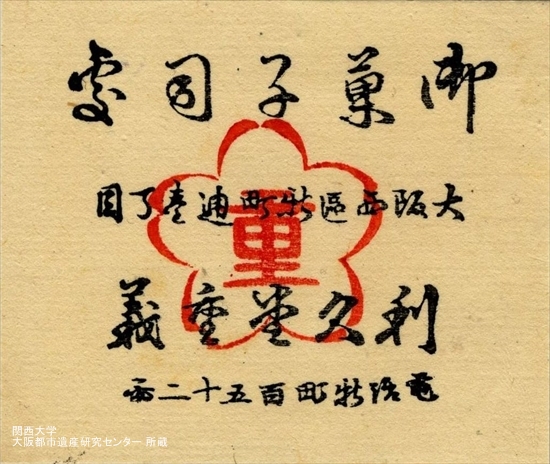 御菓子司處
大阪西區新町通壱丁目
重
利久堂重義
電話新町百五十二番
関西大学
大阪都市遺産研究センター 所蔵